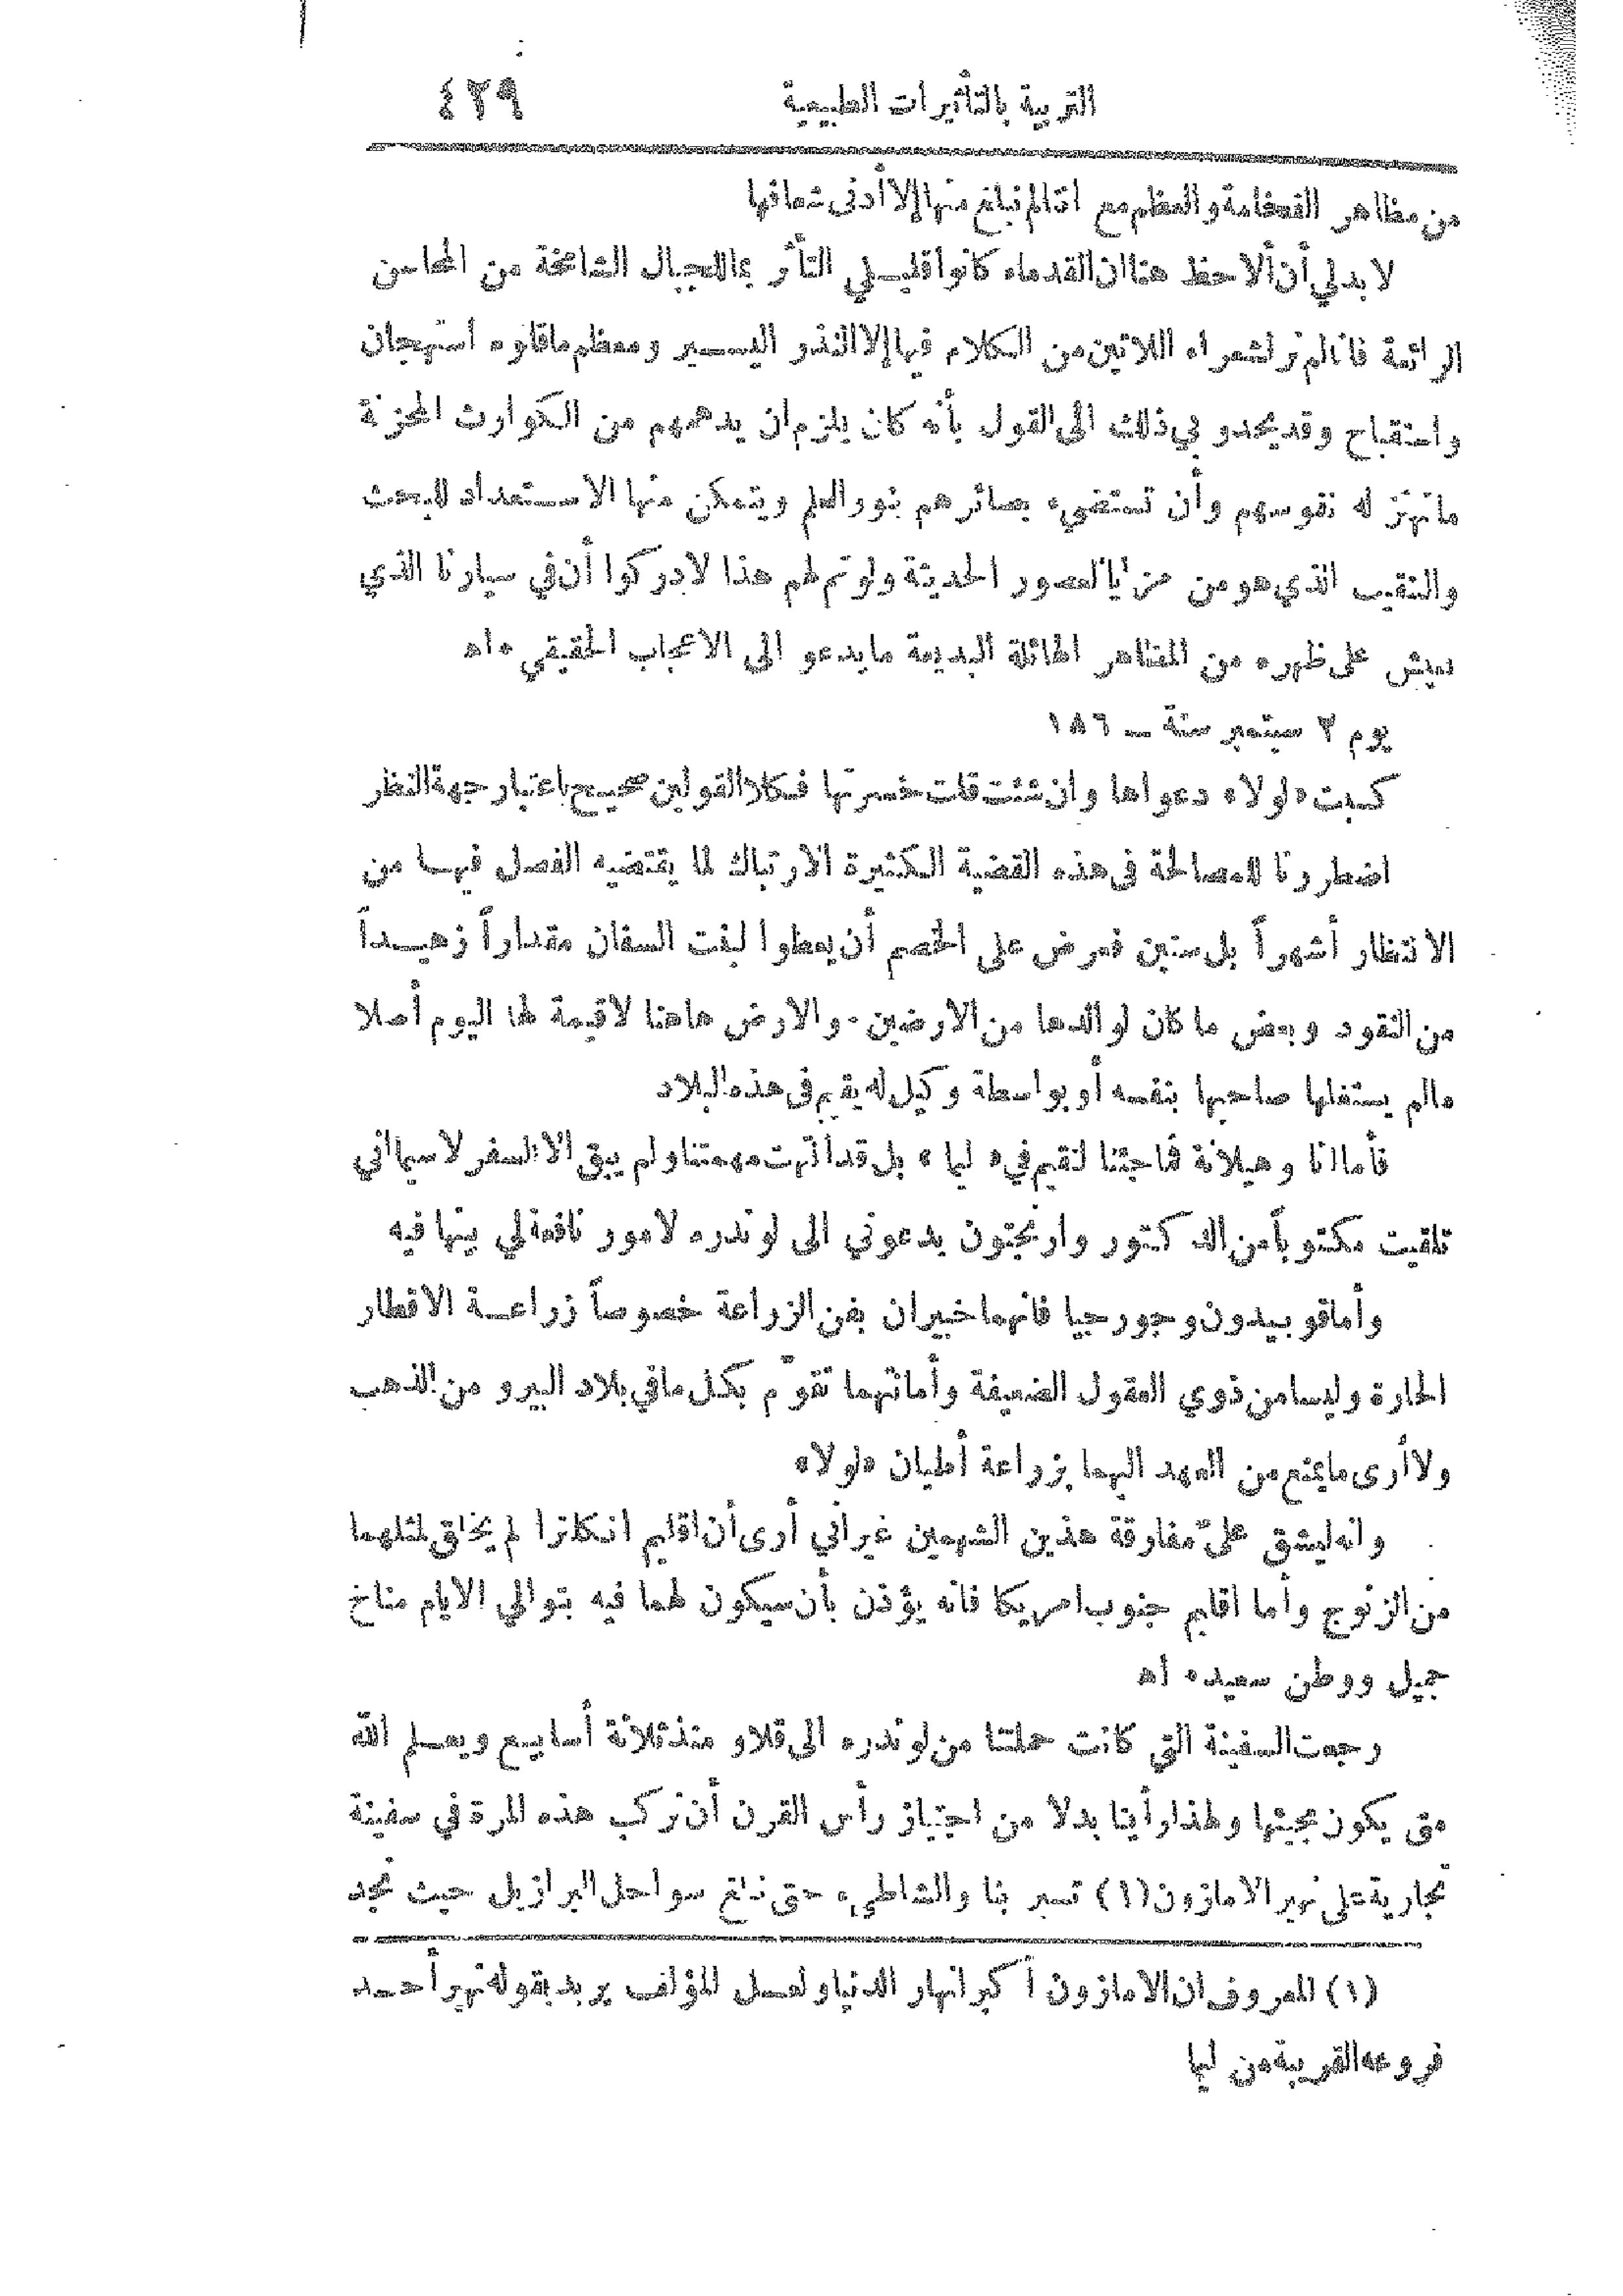 التربية بالتأثيرات الطبيعية ٤٢٩
من مظاهر الفخامة والعظم مع اننا لم نبلغ منها إلا أدنى شعافها
لا بد لي أن ألاحظ هنا ان القدماء كانوا قليلي التأثر بما للجبال الشامخة من المحاسن
الرائعة فاننا لم نر لشعراء اللاتين من الكلام فيها إلا النذر اليسير ومعظم ما قالوه استهجان
واستقباح وقد يحدو بي ذلك الى القول بأنه كان يلزم ان يدهمهم من الكوارث المحزنة
ما تهتز له نفوسهم وأن تستضيء بصائرهم بنور العلم ويتمكن منها الاستعداد للبحث
والتنقيب الذي هو من مزايا العصور الحديثة ولو تم لهم هذا لادركوا أن في سيارنا الذي
نعيش على ظهره من المظاهر الهائلة البديعة ما يدعو الى الاعجاب الحقيقي . اه
يوم ٢ سبتمبر سنة ــ ١٨٦
كسبت «لولا» دعواها وان شئت قلت خسرتها فكلا القولين صحيح باعتبار جهة النظر
اضطررنا للمصالحة فى هذه القضية الكثيرة الارتباك لما يقتضيه الفصل فيها من
الانتظار أشهراً بل سنين فعرض على الخصم أن يعطوا لبنت السفان مقداراً زهيداً
من النقود وبعض ما كان لوالدها من الارضين . والارض هاهنا لا قيمة لها اليوم أصلا
مالم يستغلها صاحبها بنفسه أو بواسطة وكيل له يقيم فى هذه البلاد
فأما انا وهيلانة فما جئنا لنقيم في «ليما» بل قد انتهت مهمتنا ولم يبق الا السفر لا سيما اني
تلقيت مكتوباً من الدكتور وارنجتون يدعوني الى لوندره لامور نافعة لي بينها فيه
وأما قوبيدون وجورجيا فانهما خبيران بفن الزراعة خصوصاً زراعة الاقطار
الحارة وليسا من ذوي العقول الضعيفة وأمانتهما تقوّم بكل ما في بلاد البيرو من الذهب
ولا أرى ما يمنع من العهد اليهما بزراعة أطيان «لولا»
وانه ليشق عليّ مفارقة هذين الشهمين غير أني أرى أن اقليم انكلترا لم يخلق لمثلهما
من الزنوج وأما اقليم جنوب امريكا فانه يؤذن بأن سيكون لهما فيه بتوالي الايام مناخ
جميل ووطن سعيد . اه
رجعت السفينة التي كانت حملتنا من لوندره الى قلاو منذ ثلاثة أسابيع ويعلم الله
متى يكون مجيئها ولهذا رأينا بدلا من اجتياز رأس القرن أن نركب هذه المرة في سفينة
تجارية على نهر الامازون (١) تسير بنا والشاطيء حتى نبلغ سواحل البرازيل حيث نجد
(١) المعروف ان الامازون أكبر انهار الدنيا ولعل المؤلف يريد بقوله نهير أحد
فروعه القريبة من ليما